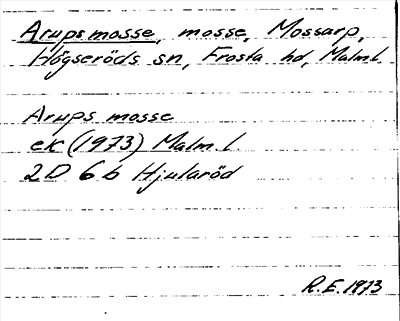 Arups mosse, mosse, Mossarp,
Högseröds sn, Frosta hd, Malm.l.
Arups mosse
ek (1973) Malm.l.
2D 6b Hjularöd
R.E. 1973